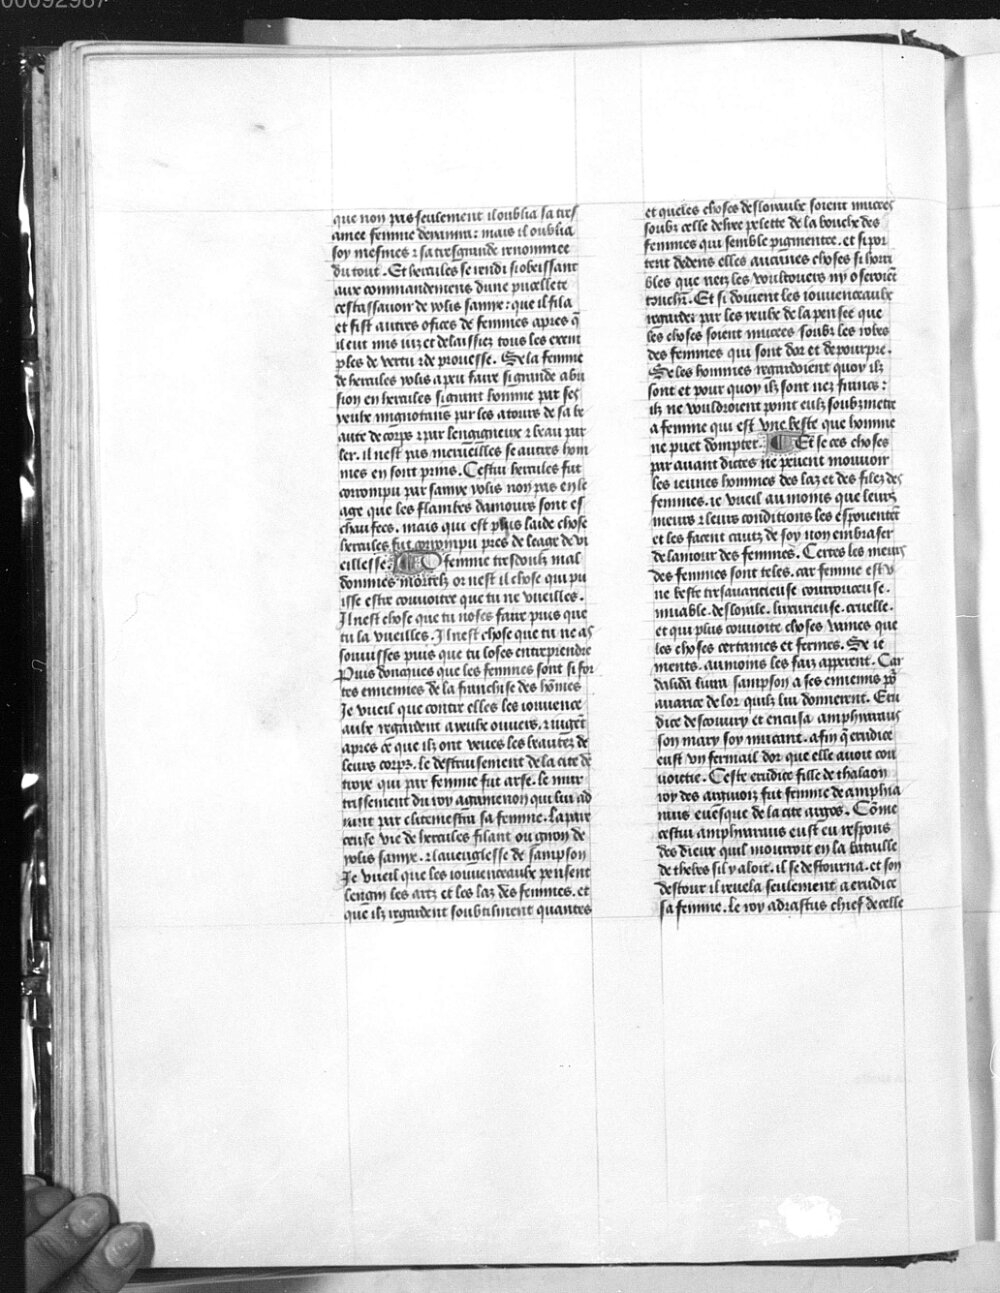 00092987
que non pas seulement il oublia sa tres
amee femme deianira: mais il oublia
soy mesmes ⁊ sa tresgrande renommee
du tout. Et hercules se rendi si obeissant
aux commandemens dune pucellete
cestassauoir de yolis famye: que il fila
et fist autres ofices de femmes apres q̄
il eut mis ius et delaissiez tous les exem
ples de vertu ⁊ de prouesse. Se la femme
de hercules yolis a peu faire si grande abu
sion en hercules si grant homme par ses
yeulx mignotans par les atours de sa be
aute de corps ⁊ par lengigneux ⁊ beau par
ler. il nest pas merueilles se autres hom
mes en sont prins. Cestui hercules fut
corrompu par famye yolis non pas en le
age que les flambes damours sont es
chaufees. mais qui est plus laide chose
hercules fut corrompu pres de leage de vi
eillesse. O femme tresdoulz mal
dommes mortelz or nest il chose qui pu
isse estre couuoitee que tu ne vueilles.
Il nest chose que tu noses faire puis que
tu la vueilles. Il nest chose que tu ne as
souuisses puis que tu loses entreprendre
Puis doncques que les femmes sont si for
tes ennemies de la franchise des hōmes
Je vueil que contre elles les iouuence
aulx regardent a yeulx ouuers. ⁊ iugēt
apres ce que ilz ont veues les beautez de
leurs corps. le destruisement de la cite de
troye qui par femme fut arse. le mur
trissement du roy agamenon qui lui ad
uint par clitemestra sa femme. la pare
ceuse vie de hercules filant ou giron de
yolis famye. ⁊ laueuglesse de sampson
Je vueil que les iouuenceaulx pensent
lengin les arz et les laz des femmes. et
que ilz regardent soubtilment quantes
et queles choses desloyaulx soient mucees
soubz celle deliee pelette de la bouche des
femmes qui semble pigmentee. et si por
tent dedens elles aucunes choses si horri
bles que nez les voultouers ny oseroiēt
touchr̄. Et si doiuent les iouuenceaulx
regarder par les yeulx de la pensee que
les choses soient mucees soubz les robes
des femmes qui sont dor et de pourpre.
Se les hommes regardoient quoy ilz
sont et pour quoy ilz sont nez francs:
ilz ne vouldroient point eulz soubzmetre
a femme qui est vne beste que homme
ne puet dompter. Et se ces choses
par auant dictes ne peuent mouuoir
les ieunes hommes des laz et des filez des
femmes. ie vueil au moins que leurs
meurs ⁊ leurs conditions les espouentēt
et les facent cautz de soy non embraser
de lamour des femmes. Certes les meurs
des femmes sont teles. car femme est v
ne beste tresauaricieuse courrouceuse.
muable. desloiale. luxurieuse. cruelle.
et qui plus couuoite choses vaines que
les choses certaines et fermes. Se ie
ments. au moins les faiz apperent. Car
dalida liura sampson a ses ennemis pō
auarice de lor quilz lui donnerent. Eru
dice descouury et encusa amphiaraus
son mary soy mucant. afin q̄ erudice
eust vn fermail dor que elle auoit cou
uoitie. Ceste erudice fille de thalaon
roy des arguois fut femme de amphia
raus euesque de la cite argos. Cōme
cestui amphiaraus eust eu respons
des dieux quil mourroit en la bataille
de thebes sil y aloit. il se destourna. et son
destour il reuela seulement a erudice
sa femme. le roy adrastus chief de celle